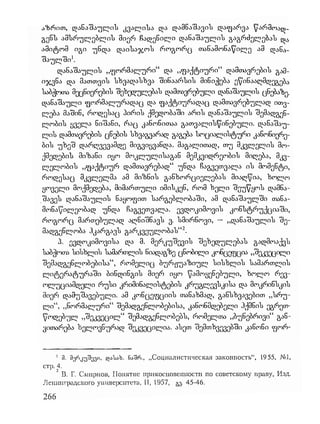 აზრით, დანაშაულის კვალისა და დამნაშავის დაფარვა წარმოად-
გენს ამსრულებლის მიერ ჩადენილი დანაშაულის გაგრძელებას და
ამიტომ იგი უნდა დაისაჯოს როგორც თანამონაწილე ამ დანა-
შაულში¹.
დანაშაულის „ფორმალური“ და „ფაქტიური“ დამთავრების გამ-
იჯვნა და მათთვის სხვადასხვა შინაარსის მინიჭება ეწინააღმდეგება
საბჭოთა მეცნიერების შეხედულებას დამთავრებული დანაშაულის ცნებაზე.
დანაშაული ფორმალურადაც და ფაქტიურადაც დამთავრებულად ითვ-
ლება მაშინ, როდესაც პირის ქმედობაში არის დანაშაულის შემადგენ-
ლობის ყველა ნიშანი, რაც კანონითაა გათვალისწინებული. დანაშაუ-
ლის დამთავრების ცნების სხვაგვარად გაგება სოციალისტური კანონიერე-
ბის უხეშ დარღვევამდე მიგვიყვანდა. მაგალითად, თუ მკვლელის მო-
ქმედების მიზანი იყო მოკლულისაგან მემკვიდრეობის მიღება, მკვ-
ლელობის „ფაქტიურ დამთავრებად“ უნდა ჩაგვეთვალა ის მომენტი,
როდესაც მკვლელმა ამ მიზნის განხორციელებას მიაღწია, ხოლო
ყოველი მოქმედება, მიმართული იმისკენ, რომ ხელი შეუწყოს დამნა-
შავეს დანაშაულის ნაყოფით სარგებლობაში, ამ დანაშაულში თანა-
მონაწილეობად უნდა ჩაგვეთვალა. ევდოკიმოვის კონსტრუქციაში,
როგორც მართებულად აღნიშნავს ვ. სმირნოვი, — „დანაშაულის შე-
მადგენლობა ჰკარგავს გარკვეულობას“².
პ. ევდოკიმოვისა და მ. მერკუშევის შეხედულებას გადმოაქვს
საბჭოთა სისხლის სამართლის ნიადაგზე ცნობილი კონცეფცია „შეკვეცილი
შემადგენლობებისა“, რომელიც ბურჟუაზიულ სისხლის სამართლის
ლიტერატურაში ბინდინგის მიერ იყო წამოყენებული, ხოლო რევ-
ოლუციამდელი რუსი კრიმინალისტების კრუგლევსკისა და მოკრინსკის
მიერ დამუშავებული. ამ კონცეფციის თანახმად, განსხვავებით „სრუ-
ლი“, „ნორმალური“ შემადგენლობებისა, კანონმდებელი ჰქმნის ეგრეთ-
წოდებულ „შეკვეცილ“ შემადგენლობებს, რომელთა „ბუნებრივი“ გან-
ვითარება ხელოვნურად შეკვეცილია. ასეთ შემთხვევებში კანონი ფორ-
¹ მ. მერკუშევი, დასახ. ნაშრ., „Социалистическая законность“, 1955, №1,
стр. 4.
² В. Г. Смирнов, Понятие прикосновенности по советскому праву, Изд.
Ленинградского университета, Л, 1957, გვ. 45-46.
266